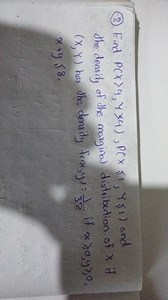 ② Find P(X>4, Y>4), P(X≤1, Y≤1) and
the density of the marginal distribution of X if
(X, Y) has the density f(x,y) = 1/32 if x>0, y>0,
x+y≤8.